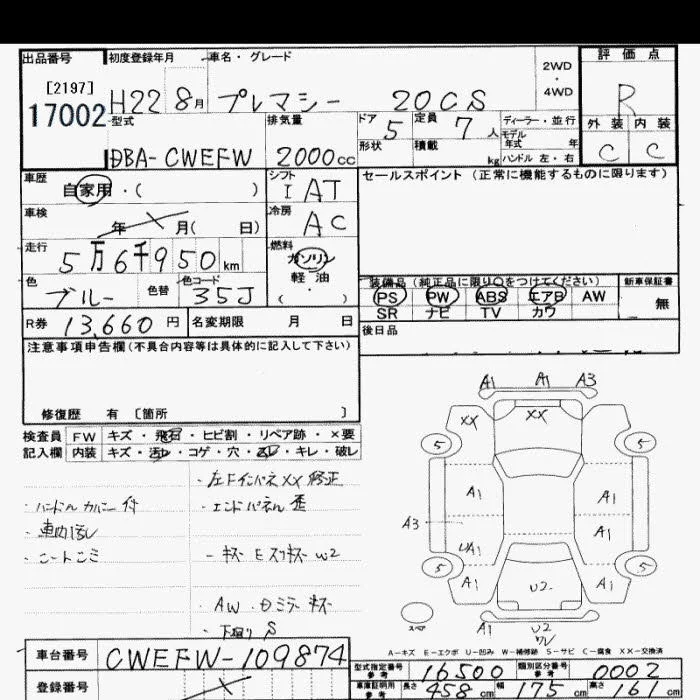 出品番号 初度登録年月 車名・グレード 評価点
[2197] 17002 H22 8月 プレマシー 20CS 2WD・4WD R
型式 排気量 ドア 定員 ディーラー・並行 外装 内装
DBA-CWEFW 2000cc 5 7人 モデル年式 年 C C
形状 積載 kg ハンドル 左・右
車歴 シフト セールスポイント (正常に機能するものに限ります)
自家用・( ) I AT
車検 冷房
年 月( 日) AC
走行 燃料
5万6千950km ガソリン
色 色替 色コード 軽油
ブルー 35J ( ・ )
装備品 (純正品に限り○をつけてください) 新車保証書
PS PW ABS エアB AW 無
SR ナビ TV カワ
R券 13,660円 名変期限 月 日 後日品
注意事項申告欄(不具合内容等は具体的に記入して下さい)
修復歴 有 [箇所 ]
検査員 FW キズ・飛石・ヒビ割・リペア跡・×要
記入欄 内装 キズ・汚れ・コゲ・穴・スレ・キレ・破レ
・左Fインパネ XX 修正
・ハンドルカバー付 ・エンドパネル 歪
・車内汚し
・シートシミ ・キズ E スリキズ U2
・AW・Dミラーキズ
・下廻り S
A1 A1 A3
XX XX
5 5
A1 A1
A3 A1
UA1
5 5
A1 U2 A1
スペア A1 U2
A-キズ E-エクボ U-凹み W-補修跡 S-サビ C-腐食 XX-交換済
車台番号 CWEFW-109874
型式指定番号 参考 16500 類別区分番号 参考 0002
登録番号
車庫証明用 参考 長さ 458cm 幅 175cm 高さ 161cm